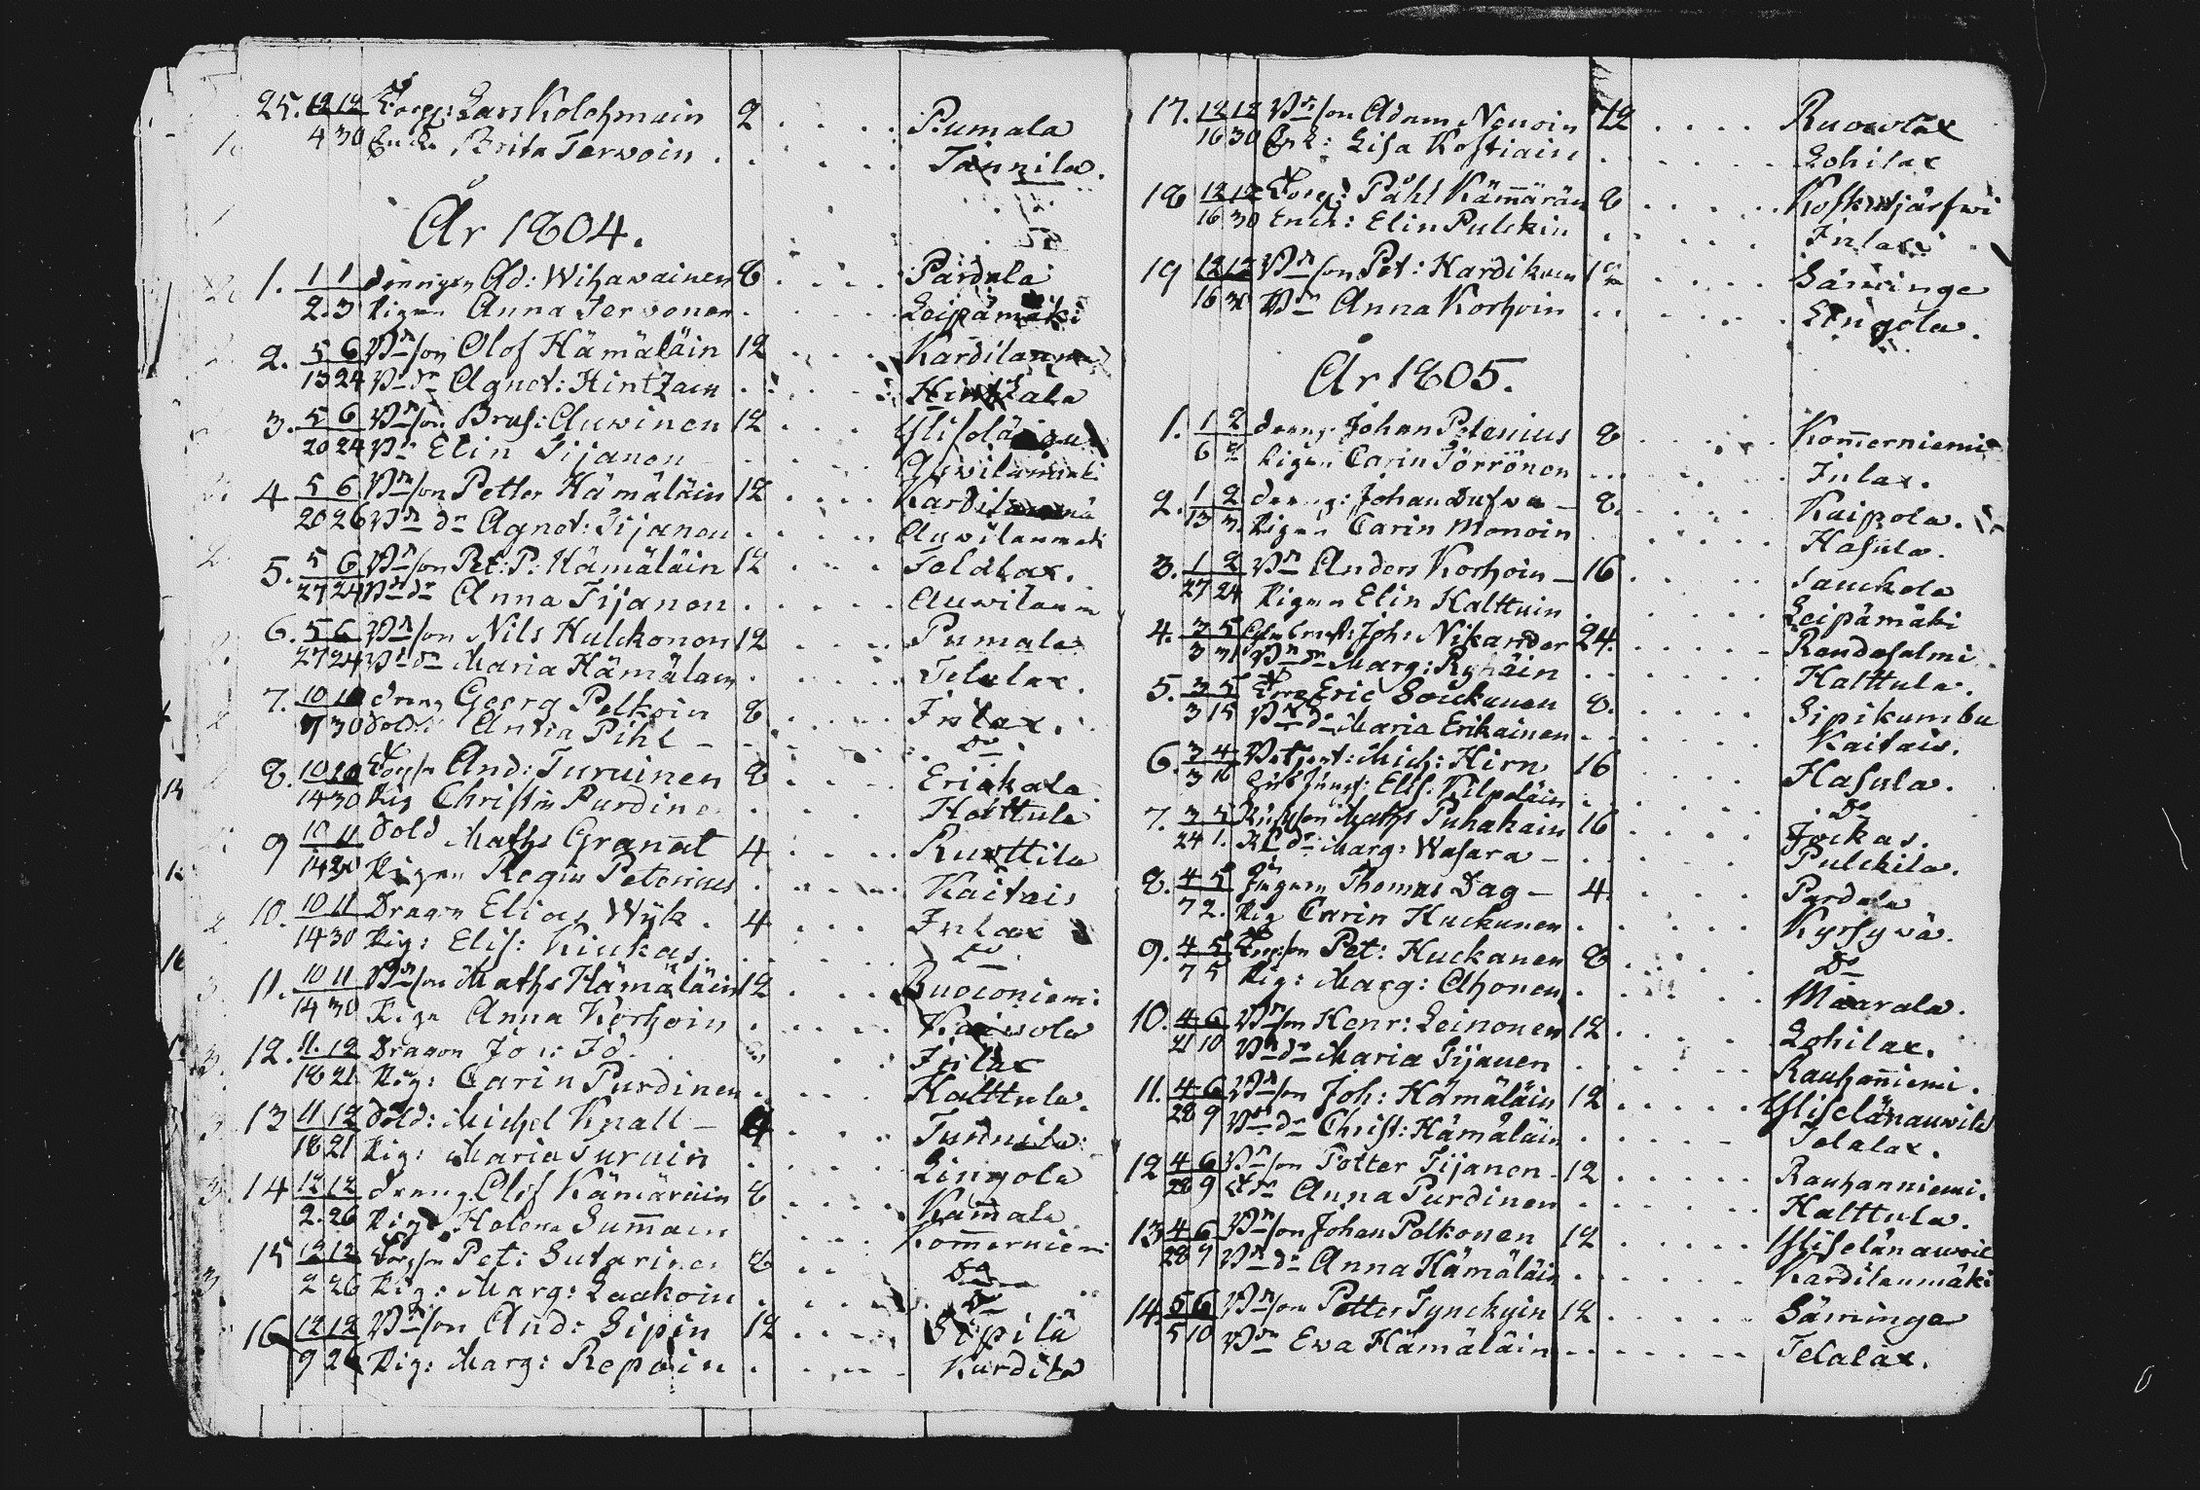 25. 12 12 Torp: Lars Kolehmain 2 . . . . Pumala
4 30 Enk. Brita Terwoin . . . . Tännila.
År 1804.
1. 1 1 drängen Ad: Wihawainen 8 . . . . Pardala
2. 3 Pigan Anna Terwonen . . . . Leipämäki
2. 5 6 Bndson Olof Hämäläin 12 . . . . Kardilanmä
13 24 Bndr Agnet: Hintzain . . . . Hintzala
3. 5 6 Bndson Brus: Auwinen 12
20 24 Bn Elin Tijanen . . . . Auwilamäki
4 5 6 Bndson Petter Hämäläin 12 . . . . Kardilanmä
20 26 Bn dr Agnet: Tijanen . . . . Auwilanmäki
5. 5 6 Bndson Pet: P: Hämäläin 12 . . . Telalax.
27 24 Bndr Anna Tijanen . . . . Auwilanm
6. 5 6 Bndson Nils Hulckonen 12 . . . . Pumala
27 24 Bn dr Maria Hämäläin . . . . Telalax.
7. 10 10 dreng Georg Pelkoin 8 . . . . Inlax.
7 30 Anna Pihl – . . . . Do
8. 10 10 Torpson And: Turuinen 8 . . . . Erickala
14 30 Pig Christin Purdine . . . . Halttula
9 10 11 Sold Maths Granat 4 . . . . Ruottila
14 30 Pigan Regin Petenius . . . . Kaitais
10. 10 11 Dragon Elias Wÿk. 4 . . . . Inlax
14 30 Pig: Elis: Kiukas. . . . . Do
11. 10 11 Bndson Maths Hämäläin 12 . . . . Buoconiemi
14 30 Piga Anna Korhoin . . . . Kaiwola
12. 11. 12 Dragon . . Inlax
18 21 Pig: Carin Purdinen . . . . Halttula.
13 11 12 Sold: Michel Knall – 4 . . . .
18 21 Pig: Maria Turuin . . . . Lingola
14 12 12 dreng Olof Kämäräin 8 . . . . Kammala
2. 26 Piga Helena Summain . . . Kommerniemi
15 12 12 Torpson Pet: Sutarinen 8 . . Do
2 26 Pig: Marg: Laakoin . . . . Do
16 12 12 Bndson And: Sipin 12 . . . . Sipilä
9 26 Pig: Marg: Repoin . . . . Kurdila
17. 12 12 Bndson Adam Nouoin 12 . . . . Ruowlax
16 30 Enk: Lisa Kostiain . . . . Lohilax
18 12 12 Torp: Påhl Kämmärän 8 . . . . Koskisjärfwi
16 30 Enck: Elin Pulckin . . . . Inlax
19 12 12 Bndson Pet: Kardikuin 12 . . . . Säminge
16 30 Bdr Anna Korhoin . . . . Lingola.
År 1805.
1. 1 2 dreng. Johan Petenius 8 . . . . Kommerniemi
6 2 Pigan Carin Törrönen . . . . Inlax.
2. 1 2 dreng: Johan Dufwa – 8. . . . . Kaipola.
13 3. Pigan Carin Monoin . . . . Hasula.
3. 1 2 Bn Anders Korhoin – 16 . . . . Sauckola
27 24 Pigan Elin Halttuin . . . . Leipämäki
4. 3 5 Joh: Nikander 24. . . . . Randasalmi
3 31 Bndr Marg: Ryhäin . . . . Halttula.
5. 3 5 Torp Eric Souckanen 8. . . . . Sipikumbu
3 15 Bndr Maria Erikainen . . . . Kaitais.
6. 3 4 Mich: Hirn 16 . . . . Hasula.
3 16 Elis: Kilpeläin . . . . Do
7. 3 5 Maths Puhakain 16 . . . . Jockas.
24 1. dr Marg: Wasara – . . . . Pulckila.
8. 4 5 Thomas Dag – 4 . . . . Pardala
7 2. Pig Carin Huckanen . . . . Kyrsywä.
9. 4 5 Torpson Pet: Huckanen 8 . . . . Do
7 5 Pig: Marg: Ahonen . . . . Maarala.
10. 4 6 Bndson Henr: Leinonen 12. . . . . Lohilax.
21 10 Bndr Maria Tijanen . . . . Rauhanniemi.
11. 4 6 Bndson Joh: Hämäläin 12 . . . . Ylisclänauwila
28 9 Bndr Christ: Hämäläin . . . . Telalax.
12 4 6 Bndson Petter Tijanen 12 . . . . Rauhanniemi.
28 9 dr Anna Purdinen . . . . Halttula.
13 4 6 Bndson Johan Polkonen 12 . . . .
28 9 Bndr Anna Hämäläin . . . . Kardilanmäki
14. 5 6 Bndson Petter Tynckyin 12 . . . . Säminge
5 10 Bdr Ewa Hämäläin . . . . Telalax.